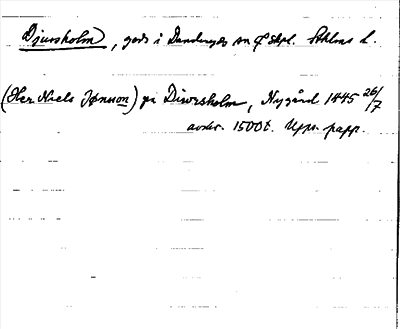 Djursholm, gods i Danderyds sn o skpl. Sthlms l.
(Her Niels Jønsson) på Diwrsholm, Nygård 1445 26/7
avskr. 1500t. Upps. papp.